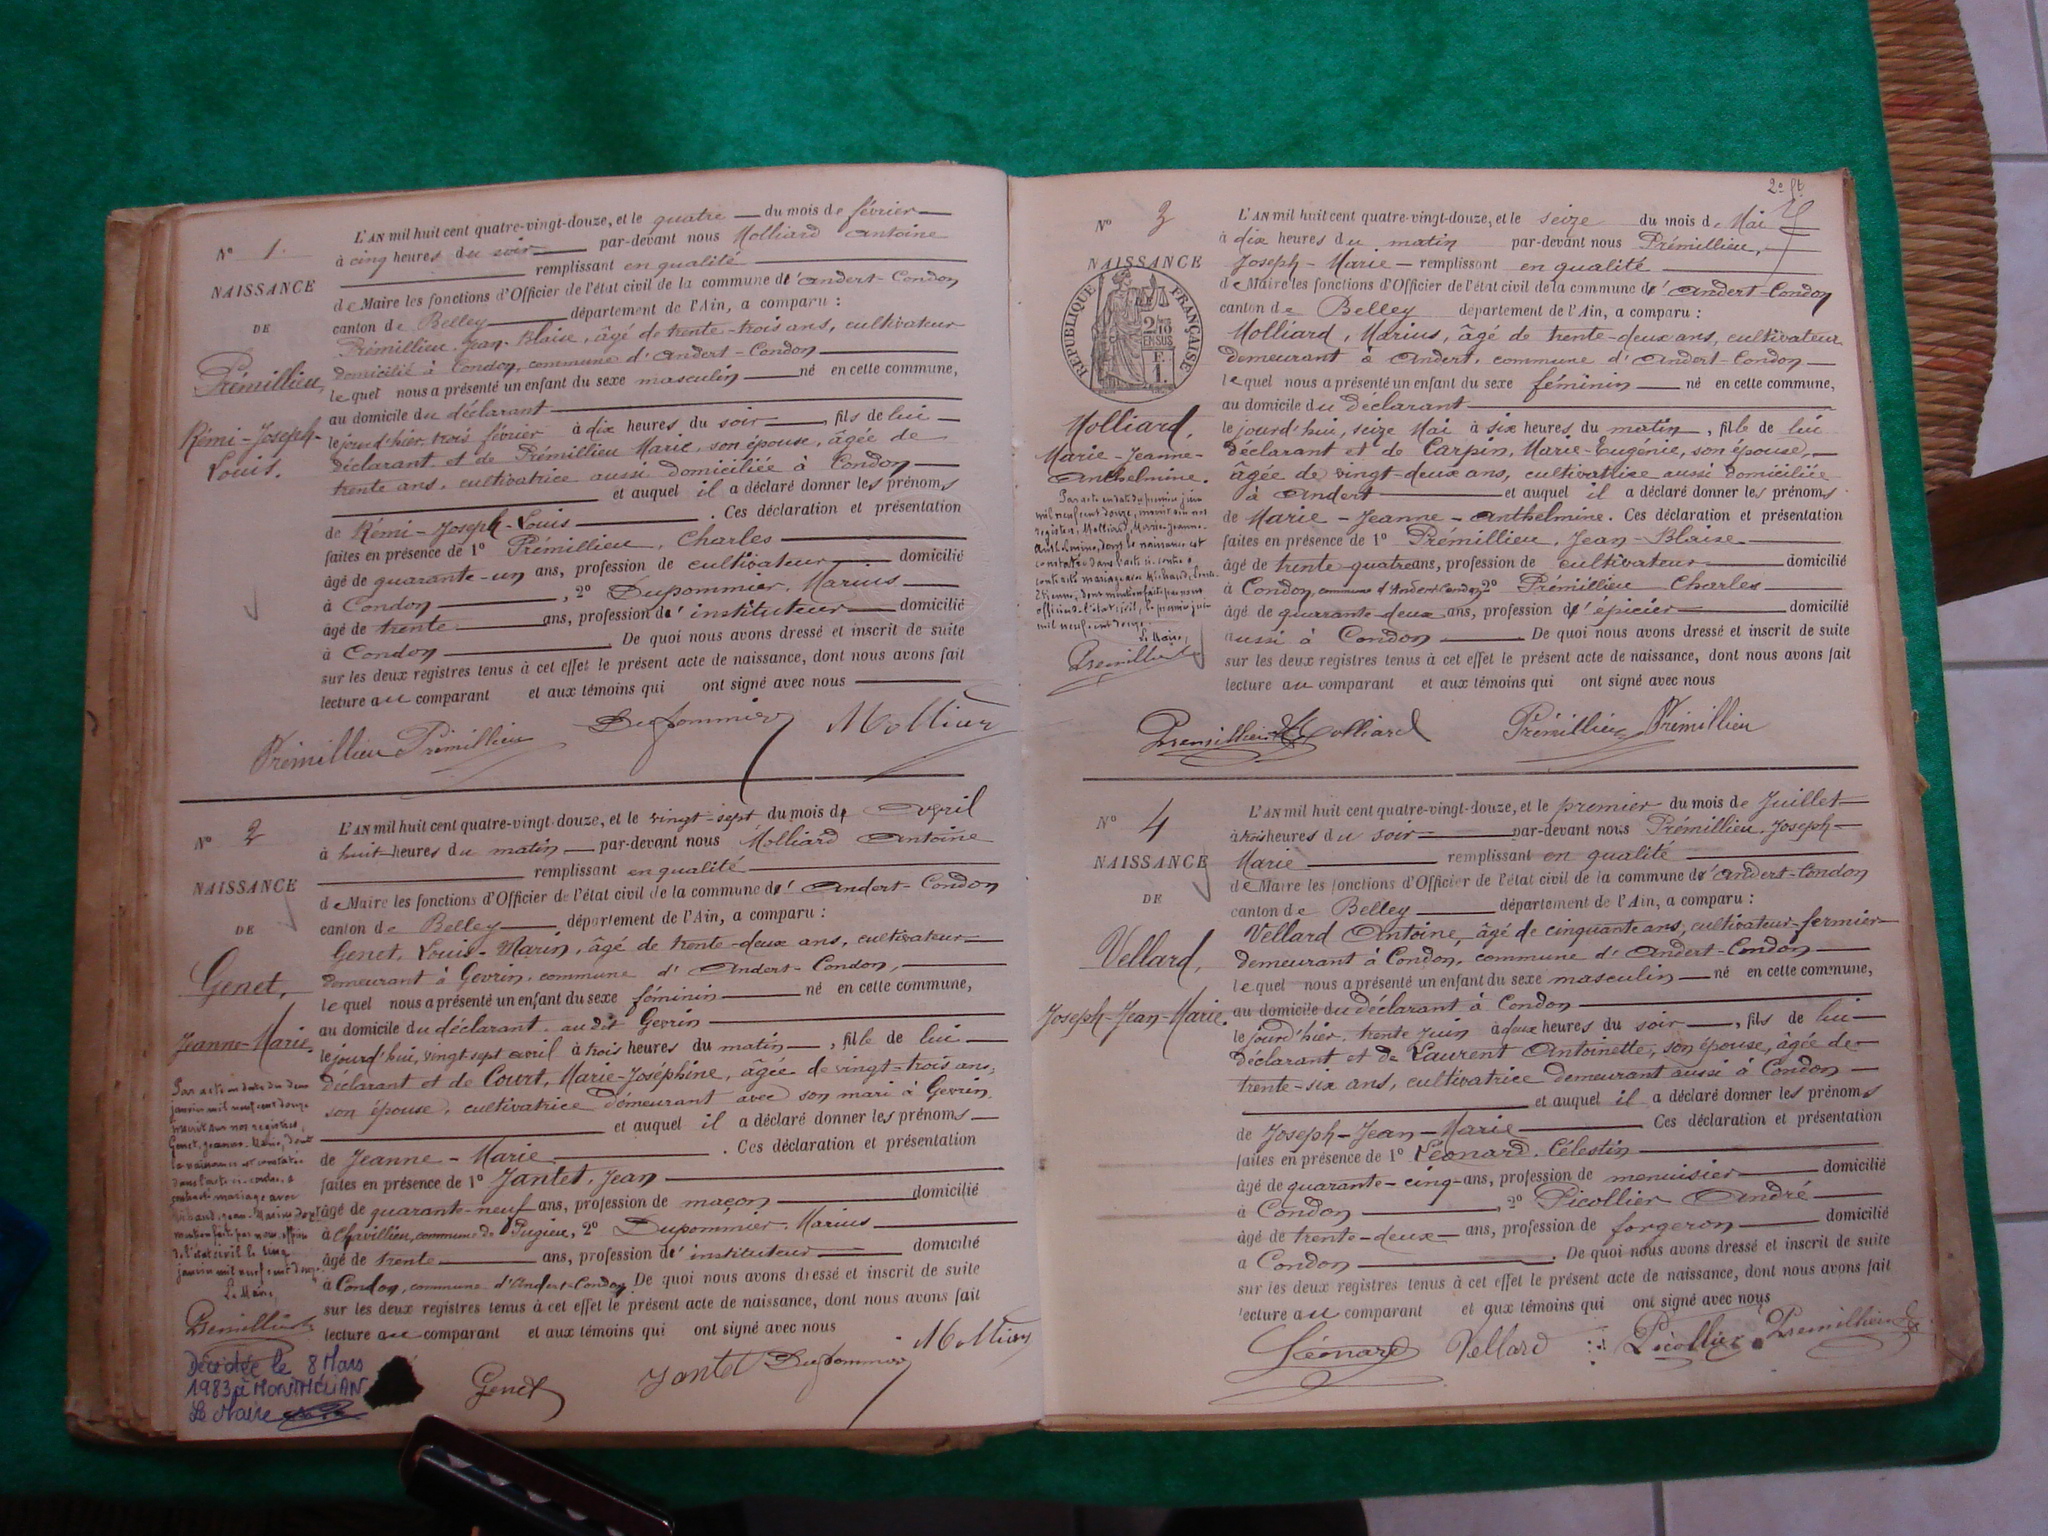 N° 1.
NAISSANCE
DE
Prémillieu,
Rémi-Joseph-
Louis.
L'AN mil huit cent quatre-vingt-douze, et le quatre du mois de février
à cinq heures du soir par-devant nous Molliard Antoine
remplissant en qualité
de Maire les fonctions d'Officier de l'état civil de la commune d'Andert-Condon
canton de Belley département de l'Ain, a comparu :
Prémillieu Jean-Blaise, âgé de trente-trois ans, cultivateur
domicilié à Condon, commune d'Andert-Condon
lequel nous a présenté un enfant du sexe masculin né en cette commune,
au domicile du déclarant
le jourd'hier, trois février à dix heures du soir, fils de lui
déclarant et de Prémillieu Marie, son épouse, âgée de
trente ans, cultivatrice aussi domiciliée à Condon
et auquel il a déclaré donner les prénoms
de Rémi-Joseph-Louis. Ces déclaration et présentation
faites en présence de 1° Prémillieu, Charles
âgé de quarante-un ans, profession de cultivateur domicilié
à Condon, 2° Dupommier, Marius
âgé de trente ans, profession d'instituteur domicilié
à Condon. De quoi nous avons dressé et inscrit de suite
sur les deux registres tenus à cet effet le présent acte de naissance, dont nous avons fait
lecture au comparant et aux témoins qui ont signé avec nous
Prémillieu Prémillieu Dupommier Molliard
N° 2
NAISSANCE
DE
Genet,
Jeanne-Marie.
Par acte en date du deux
janvier mil neuf cent douze
inscrit sur nos registres,
Genet, Jeanne-Marie, dont
la naissance est constatée
dans l'acte ci-contre, a
contracté mariage avec
Jean-Marius dont
mention faite par nous, officier
de l'état civil le cinq
janvier mil neuf cent douze.
Le Maire,
Premillieu
Décédée le 8 Mars
1983 à MONTMÉLIAN
Le Maire
L'AN mil huit cent quatre-vingt-douze, et le vingt-sept du mois de Avril
à huit heures du matin par-devant nous Molliard Antoine
remplissant en qualité
de Maire les fonctions d'Officier de l'état civil de la commune d'Andert-Condon
canton de Belley département de l'Ain, a comparu :
Genet, Louis-Marin, âgé de trente-deux ans, cultivateur
demeurant à Gevrin, commune d'Andert-Condon,
lequel nous a présenté un enfant du sexe féminin né en cette commune,
au domicile du déclarant audit Gevrin
le jourd'hui, vingt sept avril à trois heures du matin, fille de lui
déclarant et de Court, Marie-Joséphine, âgée de vingt-trois ans,
son épouse, cultivatrice demeurant avec son mari à Gevrin
et auquel il a déclaré donner les prénoms
de Jeanne-Marie. Ces déclaration et présentation
faites en présence de 1° Jantet, Jean
âgé de quarante-neuf ans, profession de maçon domicilié
à Chavillieu, commune de Pugieu, 2° Dupommier, Marius
âgé de trente ans, profession d'instituteur domicilié
à Condon, commune d'Andert-Condon. De quoi nous avons dressé et inscrit de suite
sur les deux registres tenus à cet effet le présent acte de naissance, dont nous avons fait
lecture au comparant et aux témoins qui ont signé avec nous
Genet Jantet Dupommier Molliard
2e ft
N° 3
NAISSANCE
RÉPUBLIQUE FRANÇAISE
2/10
EN SUS
F.
1.
Molliard,
Marie-Jeanne-
Anthelmine.
Par acte en date du premier juin
mil neuf cent douze, inscrit sur nos
registres, Molliard, Marie-Jeanne-
Anthelmine, dont la naissance est
constatée dans l'acte ci-contre, a
contracté mariage avec Michaud,
dont mention faite par nous
officier de l'état civil, le premier juin
mil neuf cent douze.
Le Maire,
Premillieu
L'AN mil huit cent quatre-vingt-douze, et le seize du mois de Mai
à dix heures du matin par-devant nous Prémillieu,
Joseph-Marie remplissant en qualité
de Maire les fonctions d'Officier de l'état civil de la commune d'Andert-Condon
canton de Belley département de l'Ain, a comparu :
Molliard, Marius, âgé de trente-deux ans, cultivateur
demeurant à Andert, commune d'Andert-Condon
lequel nous a présenté un enfant du sexe féminin né en cette commune,
au domicile du déclarant
le jourd'hui, seize Mai à six heures du matin, fille de lui
déclarant et de Carpin, Marie-Eugénie, son épouse,
âgée de vingt-deux ans, cultivatrice aussi domiciliée
à Andert et auquel il a déclaré donner les prénoms
de Marie-Jeanne-Anthelmine. Ces déclaration et présentation
faites en présence de 1° Prémillieu, Jean-Blaise
âgé de trente quatre ans, profession de cultivateur domicilié
à Condon, commune d'Andert-Condon, 2° Prémillieu Charles
âgé de quarante-deux ans, profession d'épicier domicilié
aussi à Condon De quoi nous avons dressé et inscrit de suite
sur les deux registres tenus à cet effet le présent acte de naissance, dont nous avons fait
lecture au comparant et aux témoins qui ont signé avec nous
Premillieu Molliard Prémillieu Prémillieu
N° 4
NAISSANCE
DE
Vellard,
Joseph-Jean-Marie.
L'AN mil huit cent quatre-vingt-douze, et le premier du mois de Juillet
à trois heures du soir par-devant nous Prémillieu, Joseph-
Marie remplissant en qualité
de Maire les fonctions d'Officier de l'état civil de la commune d'Andert-Condon
canton de Belley département de l'Ain, a comparu :
Vellard Antoine, âgé de cinquante ans, cultivateur-fermier
demeurant à Condon, commune d'Andert-Condon
lequel nous a présenté un enfant du sexe masculin né en cette commune,
au domicile du déclarant à Condon
le jourd'hier, trente Juin à deux heures du soir, fils de lui
déclarant et de Laurent Antoinette, son épouse, âgée de
trente-six ans, cultivatrice demeurant aussi à Condon
et auquel il a déclaré donner les prénoms
de Joseph-Jean-Marie Ces déclaration et présentation
faites en présence de 1° Léonard, Célestin
âgé de quarante-cinq ans, profession de menuisier domicilié
à Condon, 2° Picollier André
âgé de trente-deux ans, profession de forgeron domicilié
à Condon. De quoi nous avons dressé et inscrit de suite
sur les deux registres tenus à cet effet le présent acte de naissance, dont nous avons fait
lecture au comparant et aux témoins qui ont signé avec nous
Léonard Vellard Picollier Premillieu